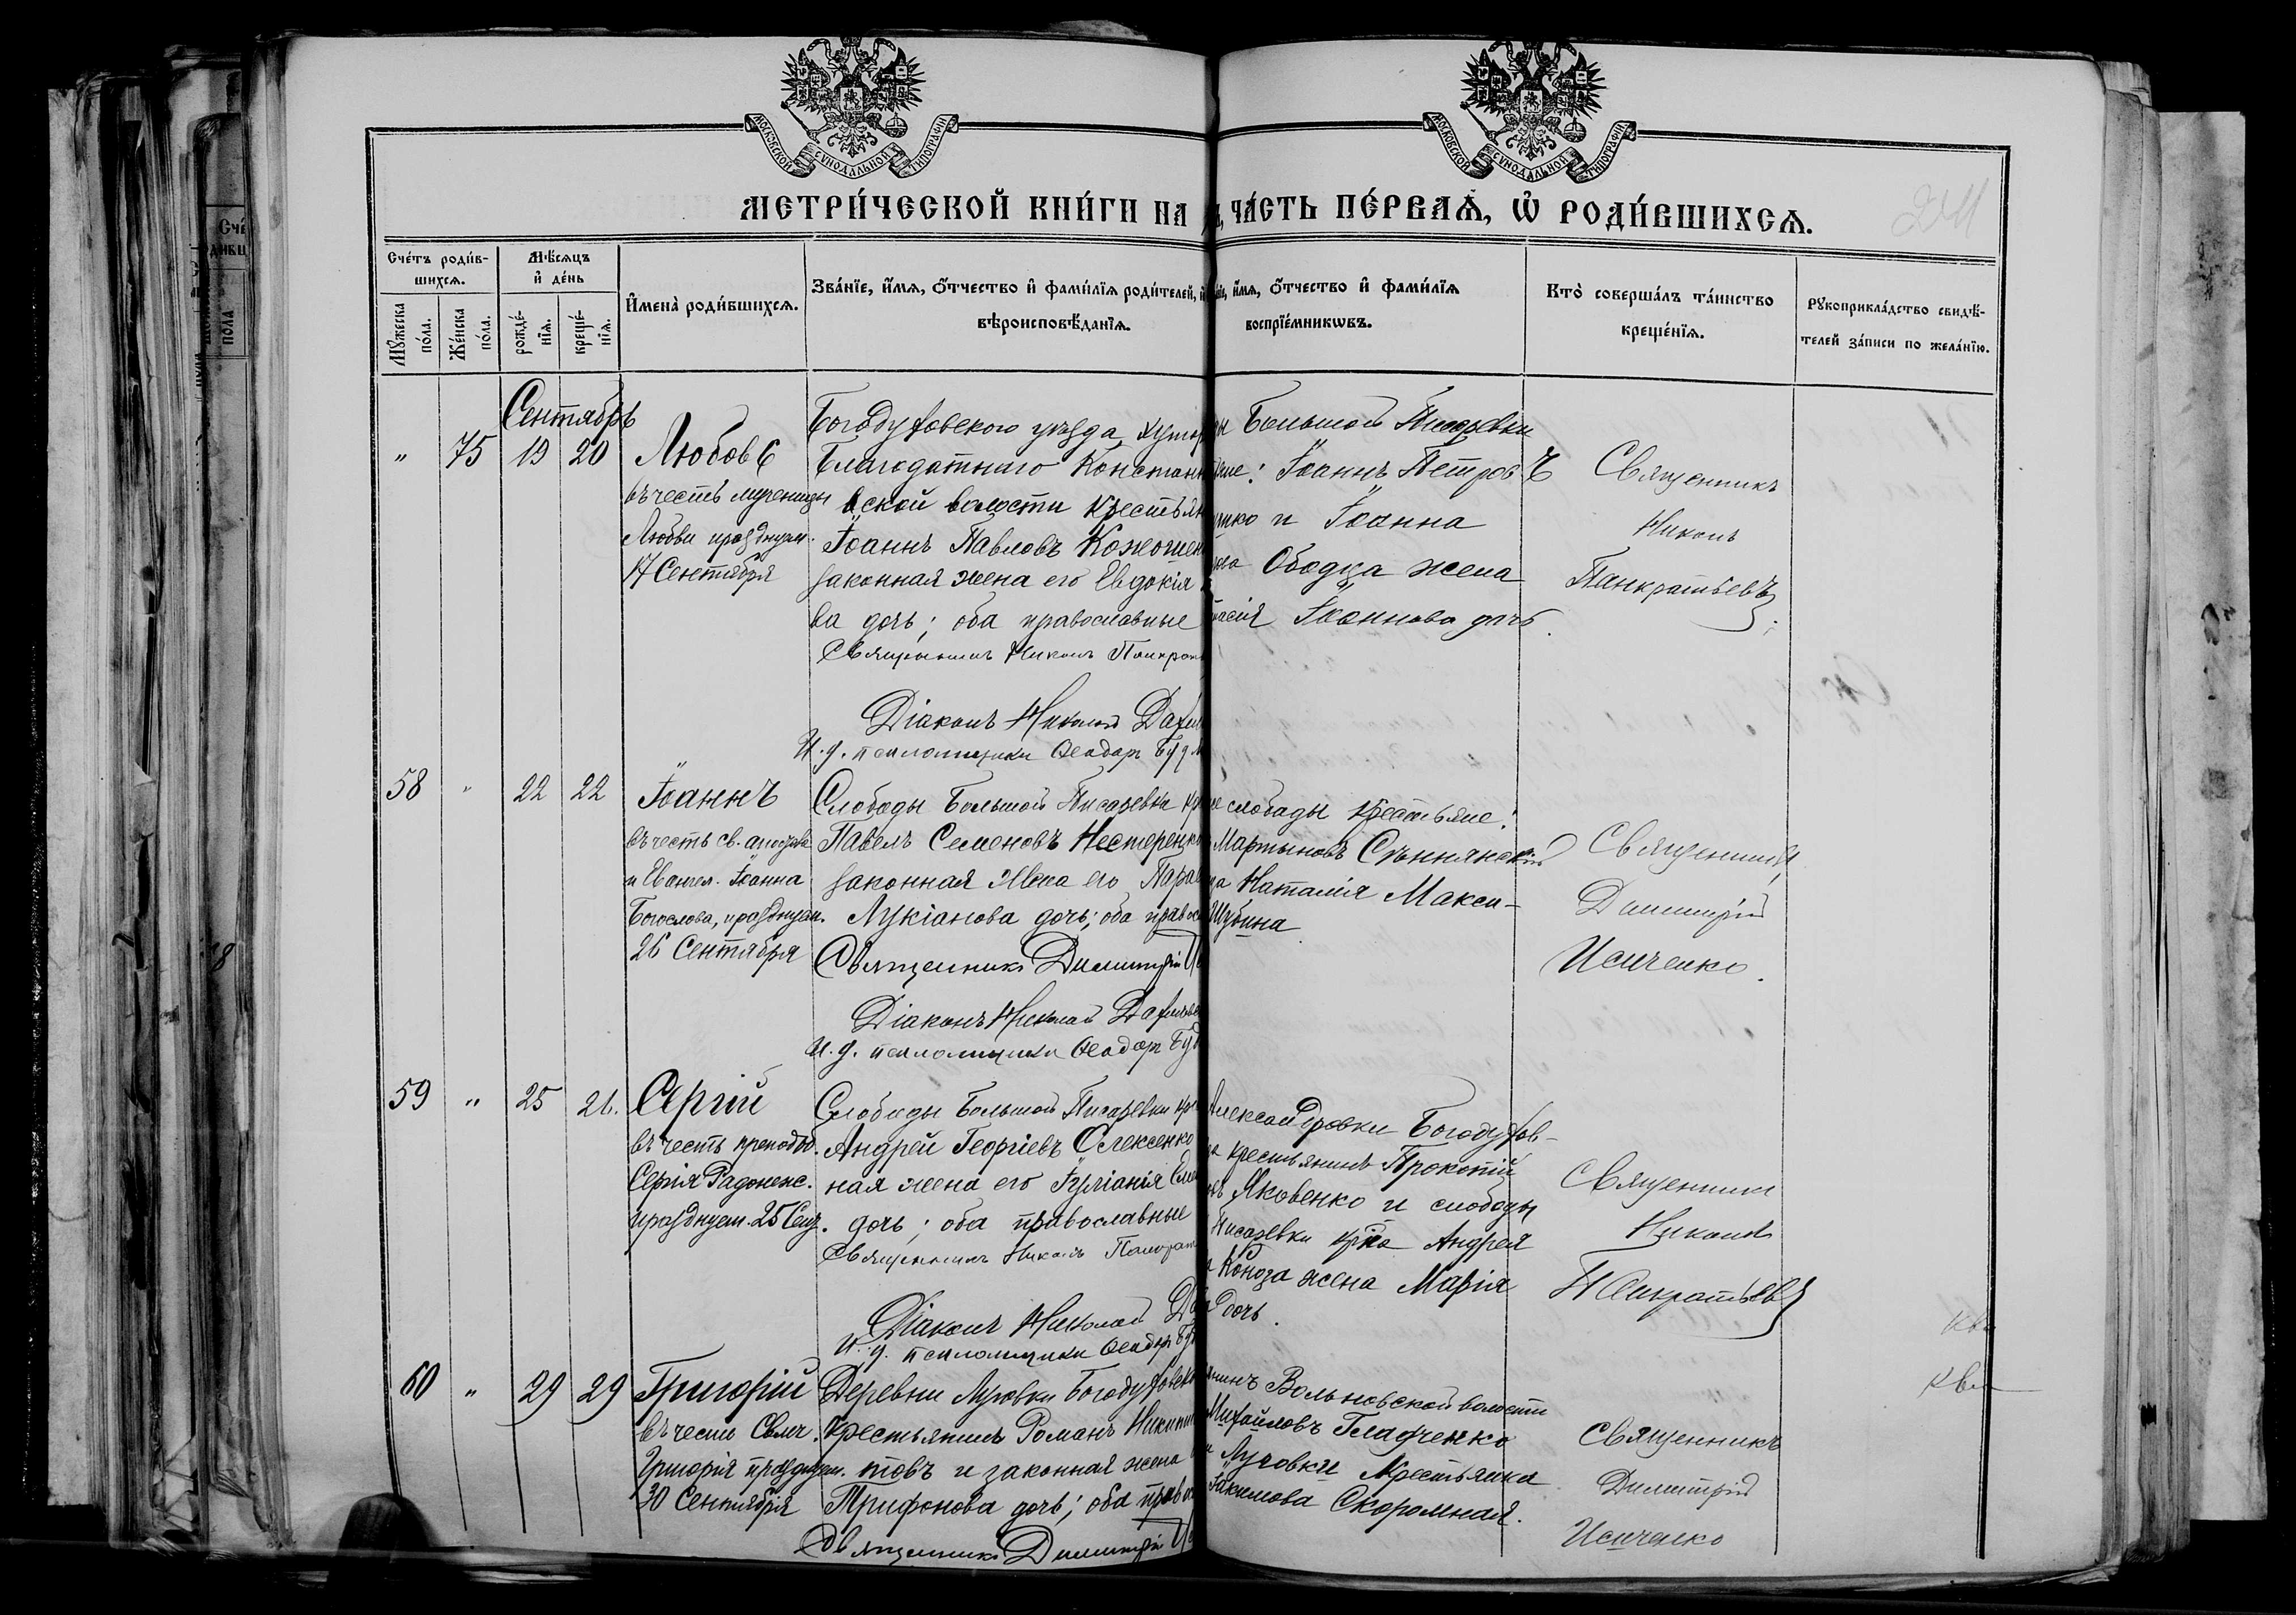 МОСКОВСКОЙ СѴНОДАЛЬНОЙ ТИПОГРАФІИ
МОСКОВСКОЙ СѴНОДАЛЬНОЙ ТИПОГРАФІИ
МЕТРИ́ЧЕСКОЙ КНИ́ГИ НА
ЧА́СТЬ ПЕ́РВАѦ, Ѡ҆ РОДИ́ВШИХСѦ.
Сче́тъ роди́в-
шихсѧ.
Мꙋ́жеска
по́ла.
Же́нска
по́ла.
Мѣ́сѧцъ
и҆ де́нь
рожде́-
нїѧ.
креще́-
нїѧ.
И҆мена̀ роди́вшихсѧ.
Зва́нїе, и҆́мѧ, ѻ҆́тчество и҆ фами́лїѧ роди́телей,
вѣроисповѣ́данїѧ.
и҆́мѧ, ѻ҆́тчество и҆ фами́лїѧ
воспрїе́мникѡвъ.
Кто̀ соверша́лъ та́инство
креще́нїѧ.
Рꙋкоприкла́дство свидѣ́-
телей за́писи по жела́нїю.
Сентябрь
" 75 19 20
Любовь
въ честь мученицы
Любви празднуем.
17 Сентября
Богодуховского уезда, хутор
Благодатного Констан
вской волости крестьян
Іоаннъ Павловъ Кожошен
законная жена его Евдокія
ва дочь; оба православные
Священникъ Никонъ Панкрать
Діаконъ Николай
И. д. псаломщика Ѳеодоръ
Большой Писаревки
Іоаннъ Петровъ
и Іоанна
Ободца жена
Іоаннова дочь
Священникъ
Никонъ
Панкратьевъ
58 " 22 22
Іоаннъ
въ честь св. апостола
и Евангел. Іоанна
Богослова, празднуем.
26 Сентября
Слободы Большой Писаревки кр
Павелъ Семеновъ Нестеренко
законная жена его Парас
Лукіанова дочь; оба правос
Священникъ Димитрій
Діаконъ Николай
И. д. псаломщика Ѳеодоръ
слободы крестьяне:
Мартыновъ
Наталія Макси-
Шубина
Священникъ
Димитрій
Исиченко
59 " 25 26.
Сергій
въ честь преподоб.
Сергія Радонеж.
празднуем. 25 Сент.
Слободы Большой Писаревки кр
Андрей Георгіевъ Олексенко
ная жена его Іуліанія
дочь; оба православные
Священникъ Никонъ Панкрат
Діаконъ Николай
И. д. псаломщика Ѳеодоръ
Александровки Богодухов-
крестьянинъ Прокопій
Яковенко и слободы
Писаревки кр-на Андрея
Коноза жена Марія
дочь.
Священникъ
Никонъ
Панкратьевъ
60 " 29 29
Григорій
въ честь Свмч.
Григорія празднуем.
30 Сентября
Деревни Луговки Богодуховск
крестьянинъ Романъ Никит
товъ и законная жена
Трифонова дочь; оба правос
Священникъ Димитрій
Вольновской волости
Михайловъ Гладченко
Луговки крестьянка
Іакимова Скоромная.
Священникъ
Димитрій
Исиченко